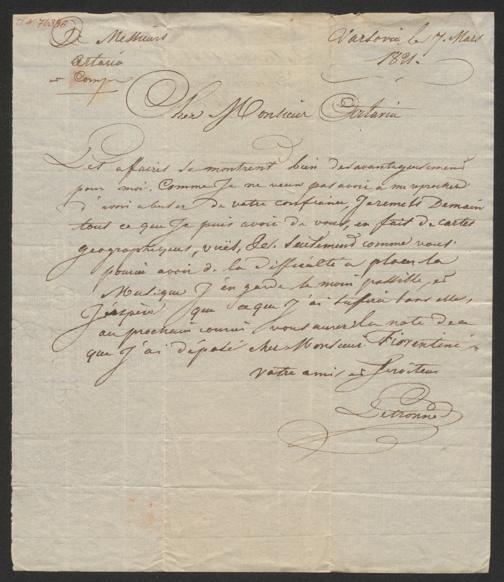 à Messieurs
Artaria
et Comp.
Varsovie le 7. Mars
1821.
Cher Monsieur Artaria
Les affaires se montrent bien desavantageusement
pour moi. Comme Je ne veux pas avoir a me reprocher
d'avoir abuser de votre confiance, Je remets Demain
tout ce que Je puis avoir de vous, en fait de cartes
geographiques, vues, &c. Seulement comme vous
avoir de la difficulté a placer la
Musique J'en garde le moin possible, et
J'espère que ce que J'ai tous
au prochain courier vous aurez la note de ce
que J'ai déposé chez Monsieur Fiorentini
Votre ami et Serviteur